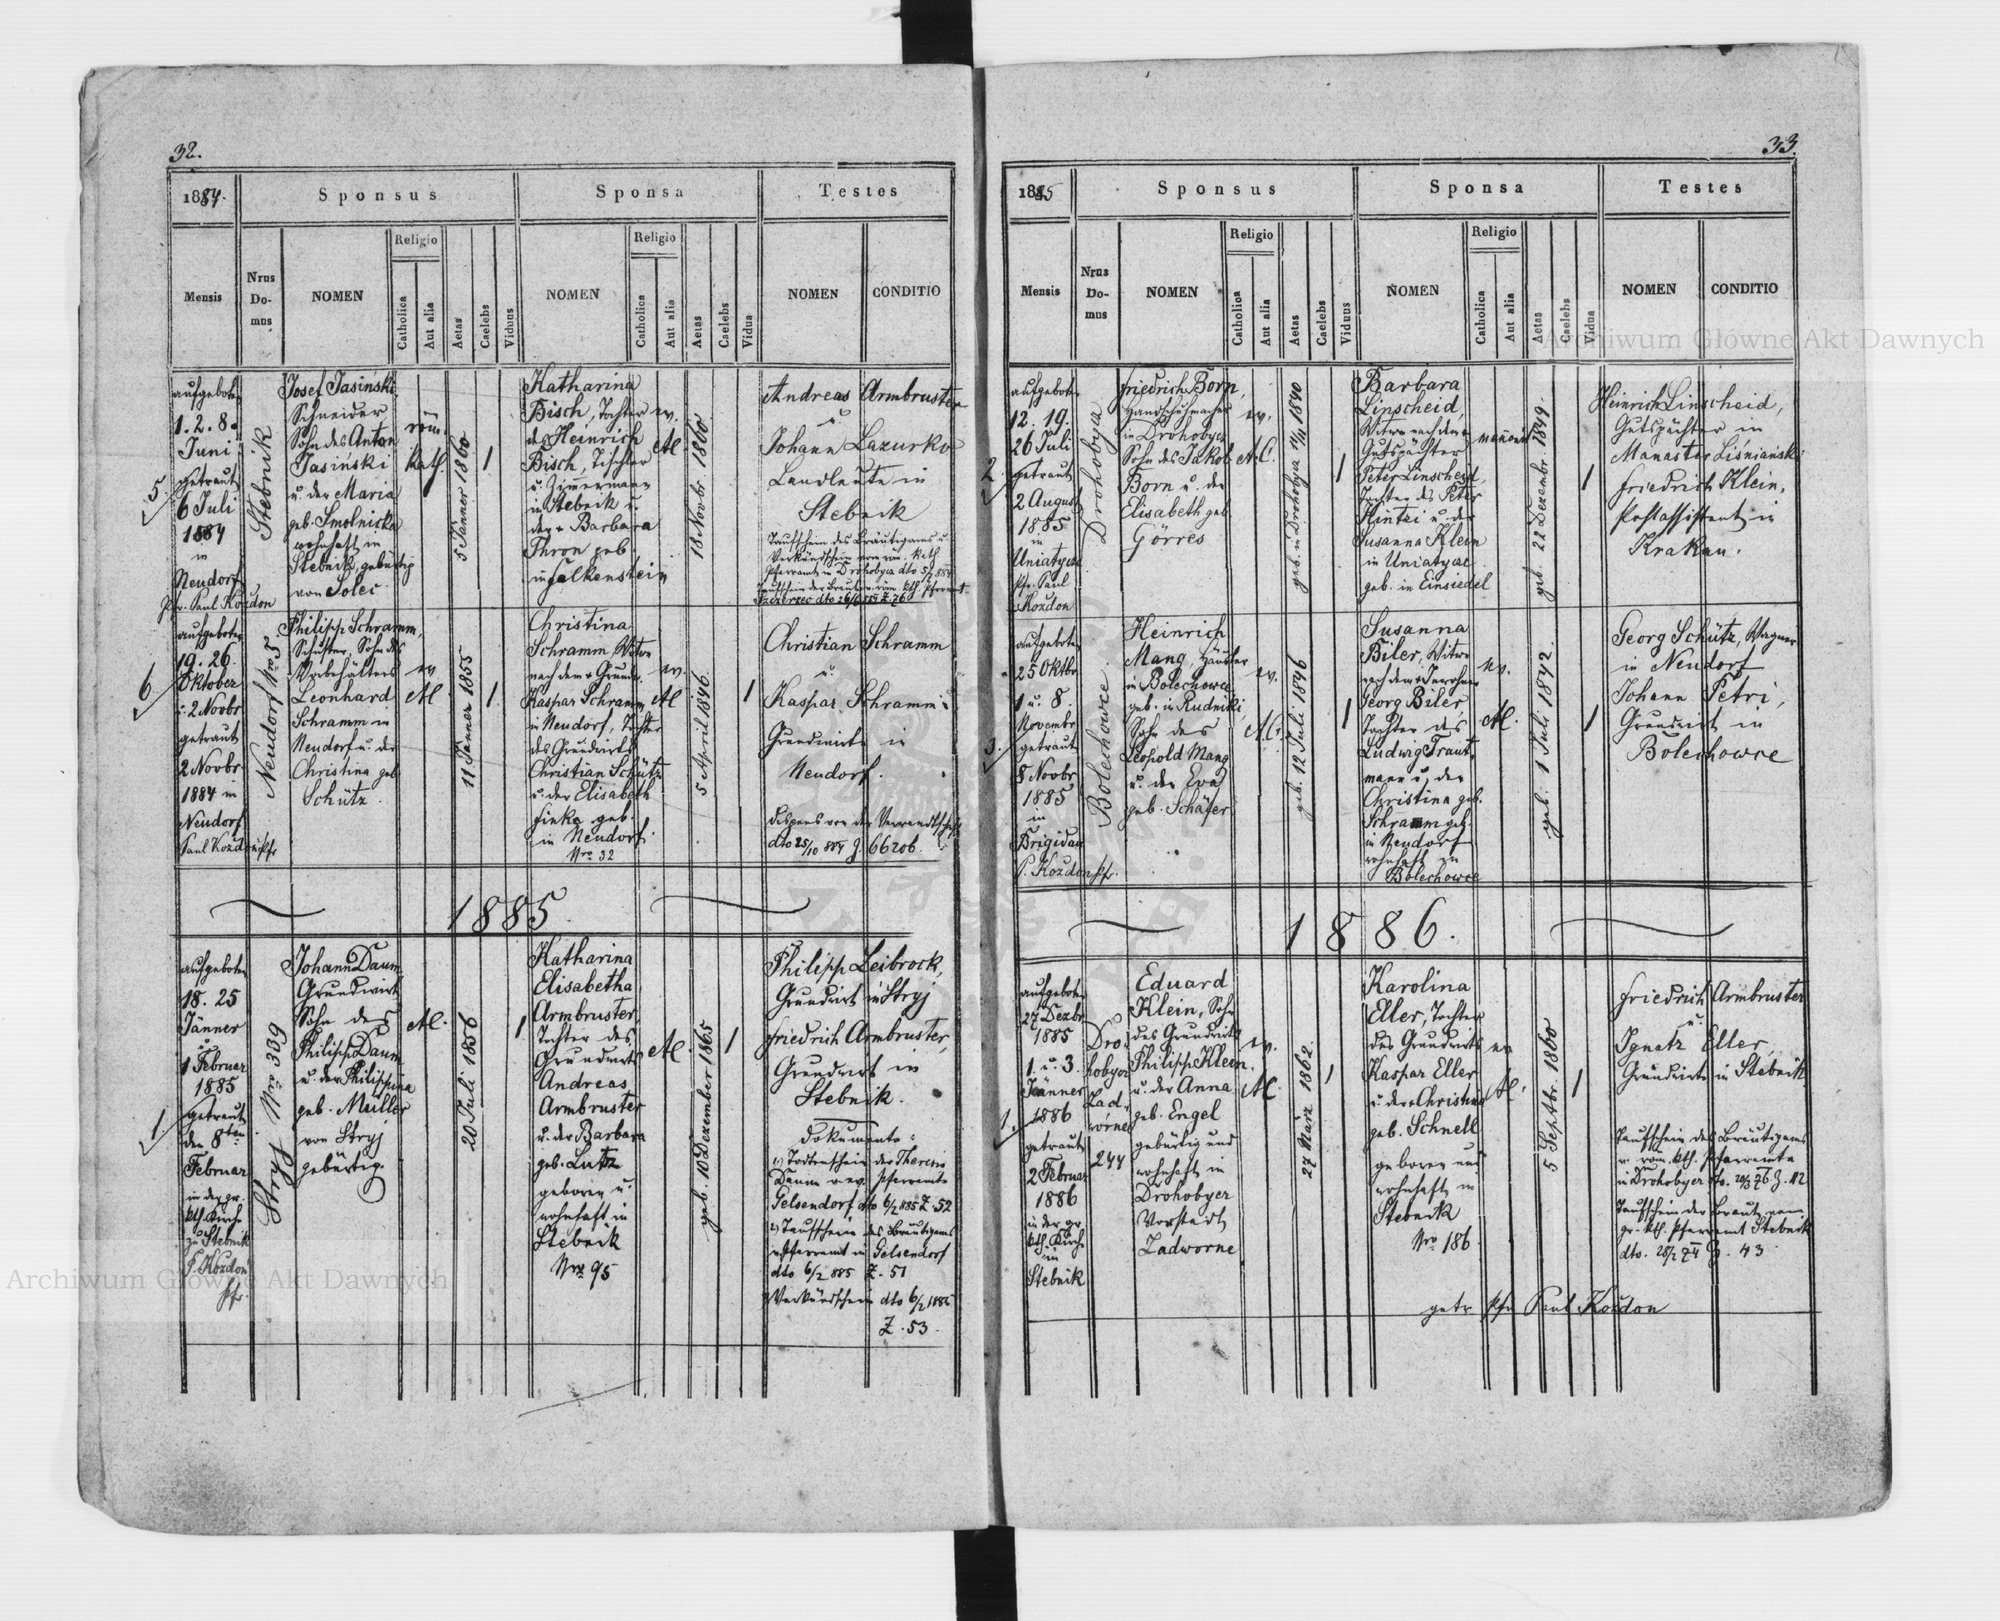 32.
1884.
Sponsus
Sponsa
Testes
Mensis
Nrus
Do-
mus
NOMEN
Religio
Catholica
Aut alia
Aetas
Caelebs
Viduus
NOMEN
Religio
Catholica
Aut alia
Aetas
Caelebs
Vidua
NOMEN
CONDITIO
5.
aufgeboten
1. 2. 8.
Juni
getraut
6 Juli
1884
in
Neudorf
Pfr. Paul Kozdon
Stebnik
Josef Jasiński,
Schneider
Sohn des Anton
Jasiński
u. der Maria
geb. Smolnicka
wohnhaft in
Stebnik, gebürtig
von Solec
röm.
kath.
5 Jänner 1860
1
Katharina
Bisch, Tochter
des Heinrich
Bisch, Tischler
u. Zimmermann
in Stebnik u.
der Barbara
Thron geb.
in Falkenstein
ev.
AC
18 Novbr 1860
1
Andreas Armbruster
u.
Johann Lazurko
Landleute in
Stebnik
Taufschein des Bräutigams u.
Verkündschein vom röm. kath.
Pfarramt in Drohobycz
6
aufgeboten
19. 26.
Oktober
u. 2 Novbr
getraut
2 Novbr
1884 in
Neudorf
Paul Kozdon Pfr
Neudorf Nro 5
Philipp Schramm,
Schuster, Sohn des
Vorbehälters
Leonhard
Schramm in
Neudorf u. der
Christina geb.
Schütz.
ev
AC
11 Jänner 1855
1
Christina
Schramm, Witwe
nach dem Grundw.
Kaspar Schramm
in Neudorf, Tochter
des Grundwirts
Christian Schütz
u. der Elisabeth
Finka geb.
in Neudorf.
Nro 32
ev.
AC
5 April 1846
1
Christian Schramm
u.
Kaspar Schramm
Grundwirte in
Neudorf.
Dispens von der Verwandtschaft
dto 25/10 884 Z. 66206.
1885
1
aufgeboten
18. 25
Jänner
u.
1 Februar
1885
getraut
den 8ten
Februar
in der gr.
kth. Kirche
zu Stebnik
P. Kozdon
Pfr.
Stryj Nro 309
Johann Daum
Grundwirt
Sohn des
Philipp Daum
u. der Philippina
geb. Müller
von Stryj
gebürtig.
AC.
20 Juli 1856
1
Katharina
Elisabetha
Armbruster
Tochter des
Grundwirts
Andreas
Armbruster
u. der Barbara
geb. Lutz
geboren u.
wohnhaft in
Stebnik
Nro 95
AC.
geb. 10 Dezember 1865
1
Philipp Leibrock,
Grundwirt in Stryj
Friedrich Armbruster,
Grundwirt in
Stebnik.
Dokumente:
1) Todtenschein der Theresia
Daum v. ev. Pfarramte
Gelsendorf dto 6/2 885 Z. 52
2) Taufschein des Bräutigams
v. Pfarramt in Gelsendorf
dto 6/2 885 Z. 51
Verkündschein dto 6/2 1885
Z. 53.
33.
1885
Sponsus
Sponsa
Testes
Mensis
Nrus
Do-
mus
NOMEN
Religio
Catholica
Aut alia
Aetas
Caelebs
Viduus
NOMEN
Religio
Catholica
Aut alia
Aetas
Caelebs
Vidua
NOMEN
CONDITIO
2.
aufgeboten
12. 19.
26 Juli
getraut
2 August
1885
in
Uniatycze
Pfr. Paul
Kozdon
Drohobycz
Friedrich Born,
Handschuhmacher
in Drohobycz
Sohn des Jakob
Born u. der
Elisabeth geb.
Görres
ev.
A.C.
geb. in Drohobycz 1840
1
Barbara
Linscheid,
Witwe nach dem
Gutspächter
Peter Linscheid,
Tochter des Peter
Hintzi u. der
Susanna Klein
in Uniatycze
geb. in Einsiedel
geb. 22 Dezembr. 1849.
1
Heinrich Linscheid,
Gutspächter in
Manaster Liśniański
Friedrich Klein,
Postassistent in
Krakau.
3.
aufgeboten
25 Oktbr
1 u. 8.
Novembr
getraut
8 Novbr
1885
in
Brigidau
P. Kozdon Pfr.
Bolechowce
Heinrich
Mang, Häusler
in Bolechowce
geb. in Rudniki,
Sohn des
Leopold Mang
u. der Eva
geb. Schäfer
ev.
A.C.
geb. 12 Juli 1846
1
Susanna
Biler, Witwe
nach dem Inwohner
Georg Biler,
Tochter des
Ludwig Traut-
mann u. der
Christina geb.
Schramm geb.
in Neudorf
wohnhaft in
Bolechowce
ev.
AC.
geb. 1 Juli 1842.
1
Georg Schütz, Wagner
in Neudorf
Johann Petri,
Grundwirt in
Bolechowce
1886.
1.
aufgeboten
27 Dezbr
1885
1. u. 3.
Jänner
1886
getraut
2 Februar
1886
in der gr.
kth. Kirche
in
Stebnik
Dro-
hobycz
Zad-
worne
244
Eduard
Klein, Sohn
des Grundwirts
Philipp Klein
u. der Anna
geb. Engel
gebürtig und
wohnhaft in
Drohobycz
Vorstadt
Zadworne
ev.
AC
27 März 1862.
1
Karolina
Eller, Tochter
des Grundwirts
Kaspar Eller
u. der Christina
geb. Schnell
geboren und
wohnhaft in
Stebnik
Nro 186.
ev
AC.
5 Septbr. 1860
1
Friedrich Armbruster
u.
Ignatz Eller,
Grundwirte in Stebnik
Taufschein des Bräutigams
v. röm. kth. Pfarramte
in Drohobycz dto. 20/3 76 Z. 112
Taufschein der Braut vom
gr. kth. Pfarramt Stebnik
dto. 28/2 74 Z. 43.
getr Pfr Paul Kozdon
Archiwum Główne Akt Dawnych
Archiwum Główne Akt Dawnych